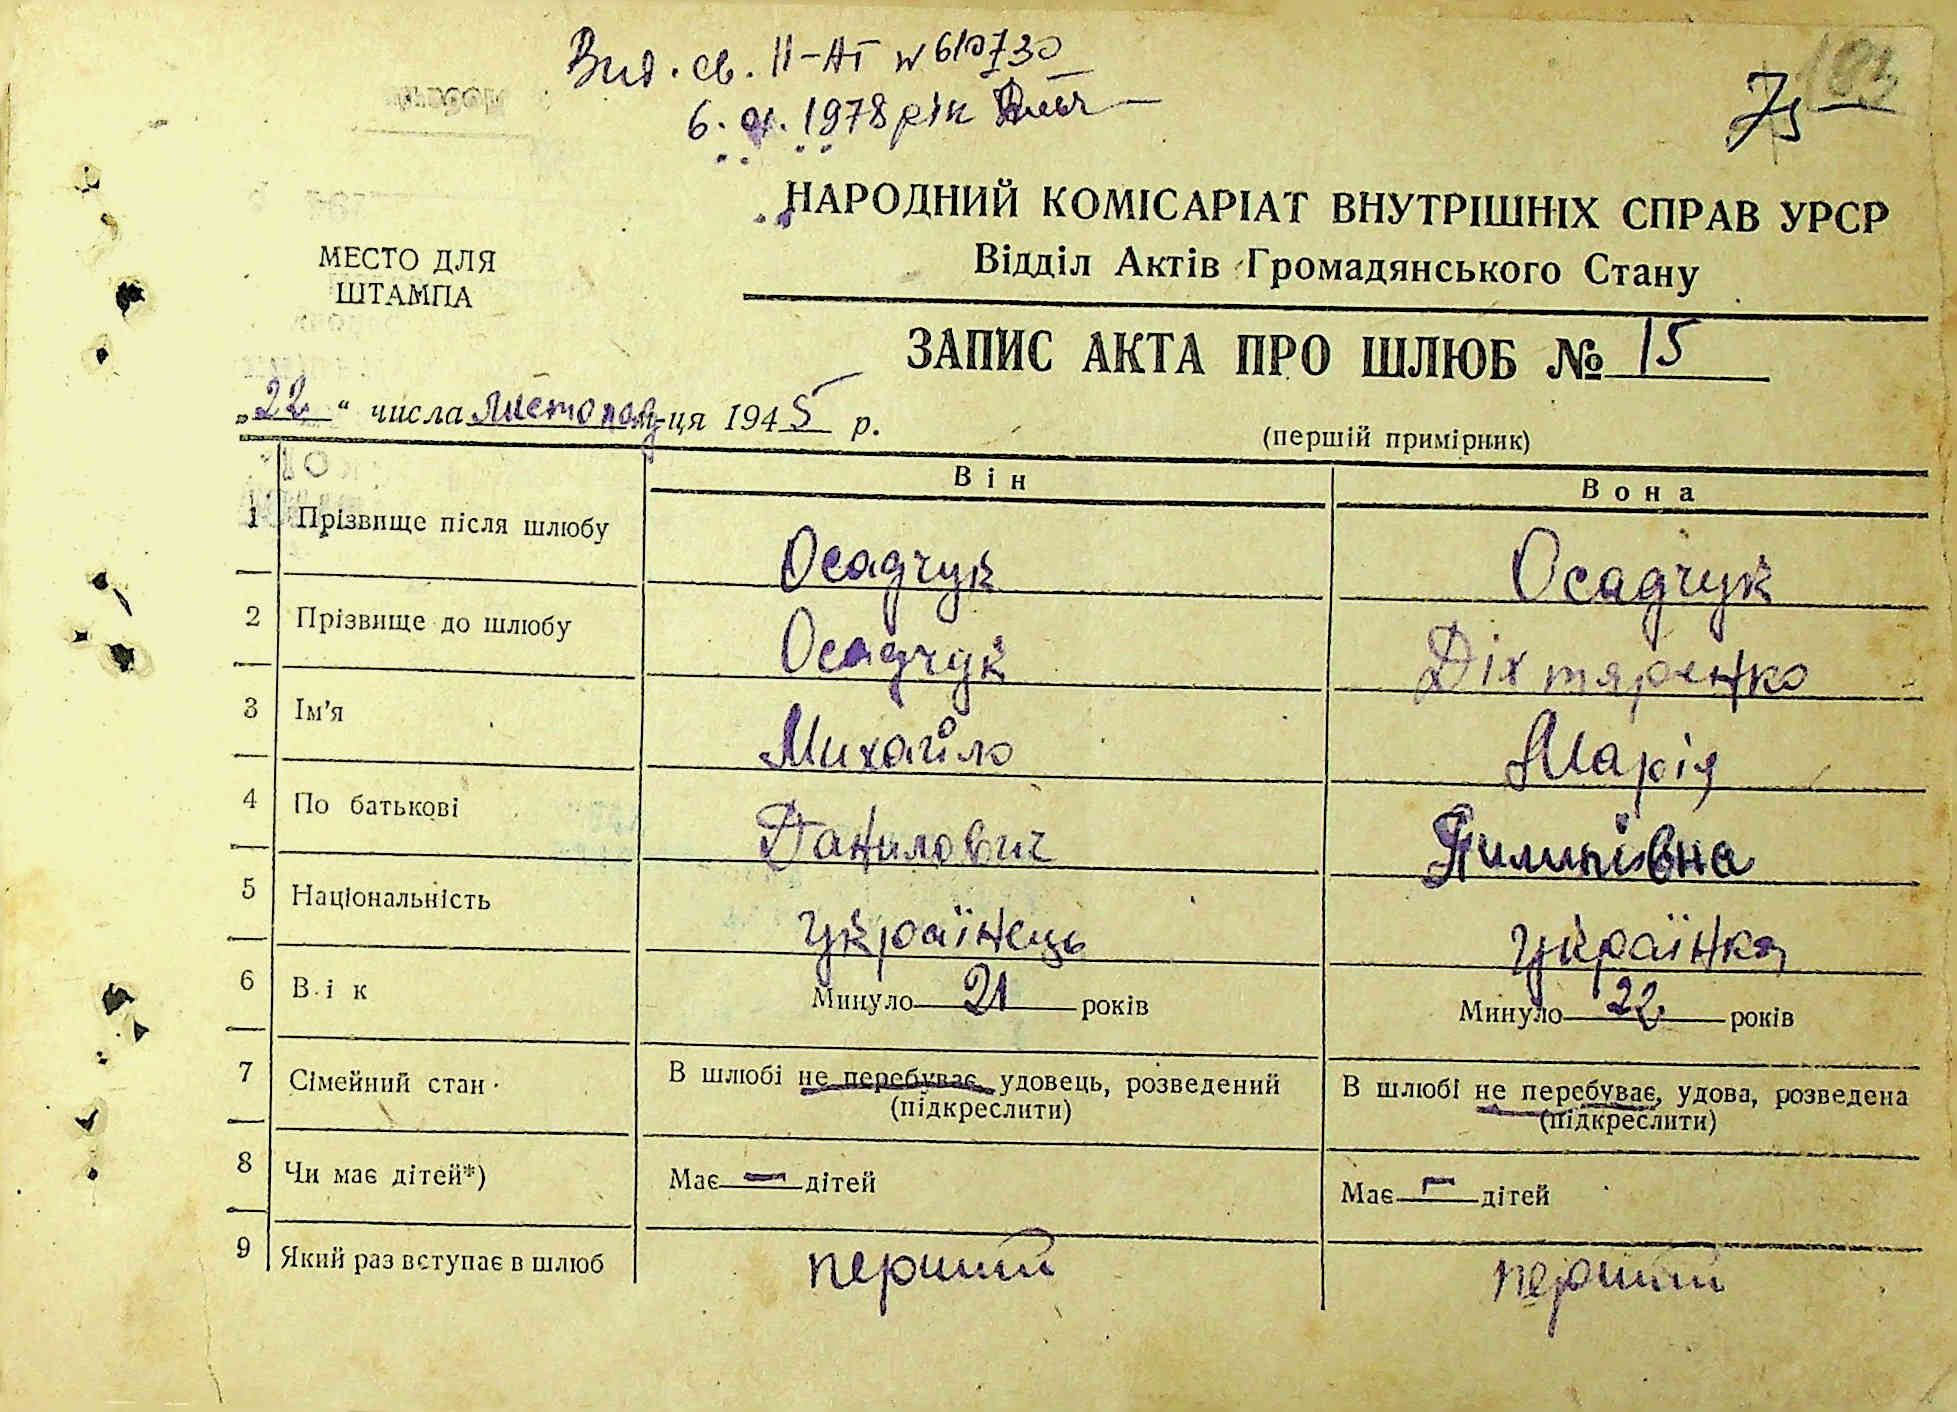 Вид. св. II-АГ № 610730
6. 1978 рік
75
183
НАРОДНИЙ КОМІСАРІАТ ВНУТРІШНІХ СПРАВ УРСР
Відділ Актів Громадянського Стану
МЕСТО ДЛЯ
ШТАМПА
ЗАПИС АКТА ПРО ШЛЮБ № 15
„22“ числа листопад м-ця 1945 р.
(першій примірник)
Він Вона
1 Прізвище після шлюбу Осадчук Осадчук
2 Прізвище до шлюбу Осадчук Діхтяренко
3 Ім'я Михайло Марія
4 По батькові Данилович Пилипівна
5 Національність Українець Українка
6 Вік Минуло 21 років Минуло 22 років
7 Сімейний стан В шлюбі не перебуває, удовець, розведений В шлюбі не перебуває, удова, розведена
(підкреслити) (підкреслити)
8 Чи має дітей*) Має — дітей Має — дітей
9 Який раз вступає в шлюб перший перший